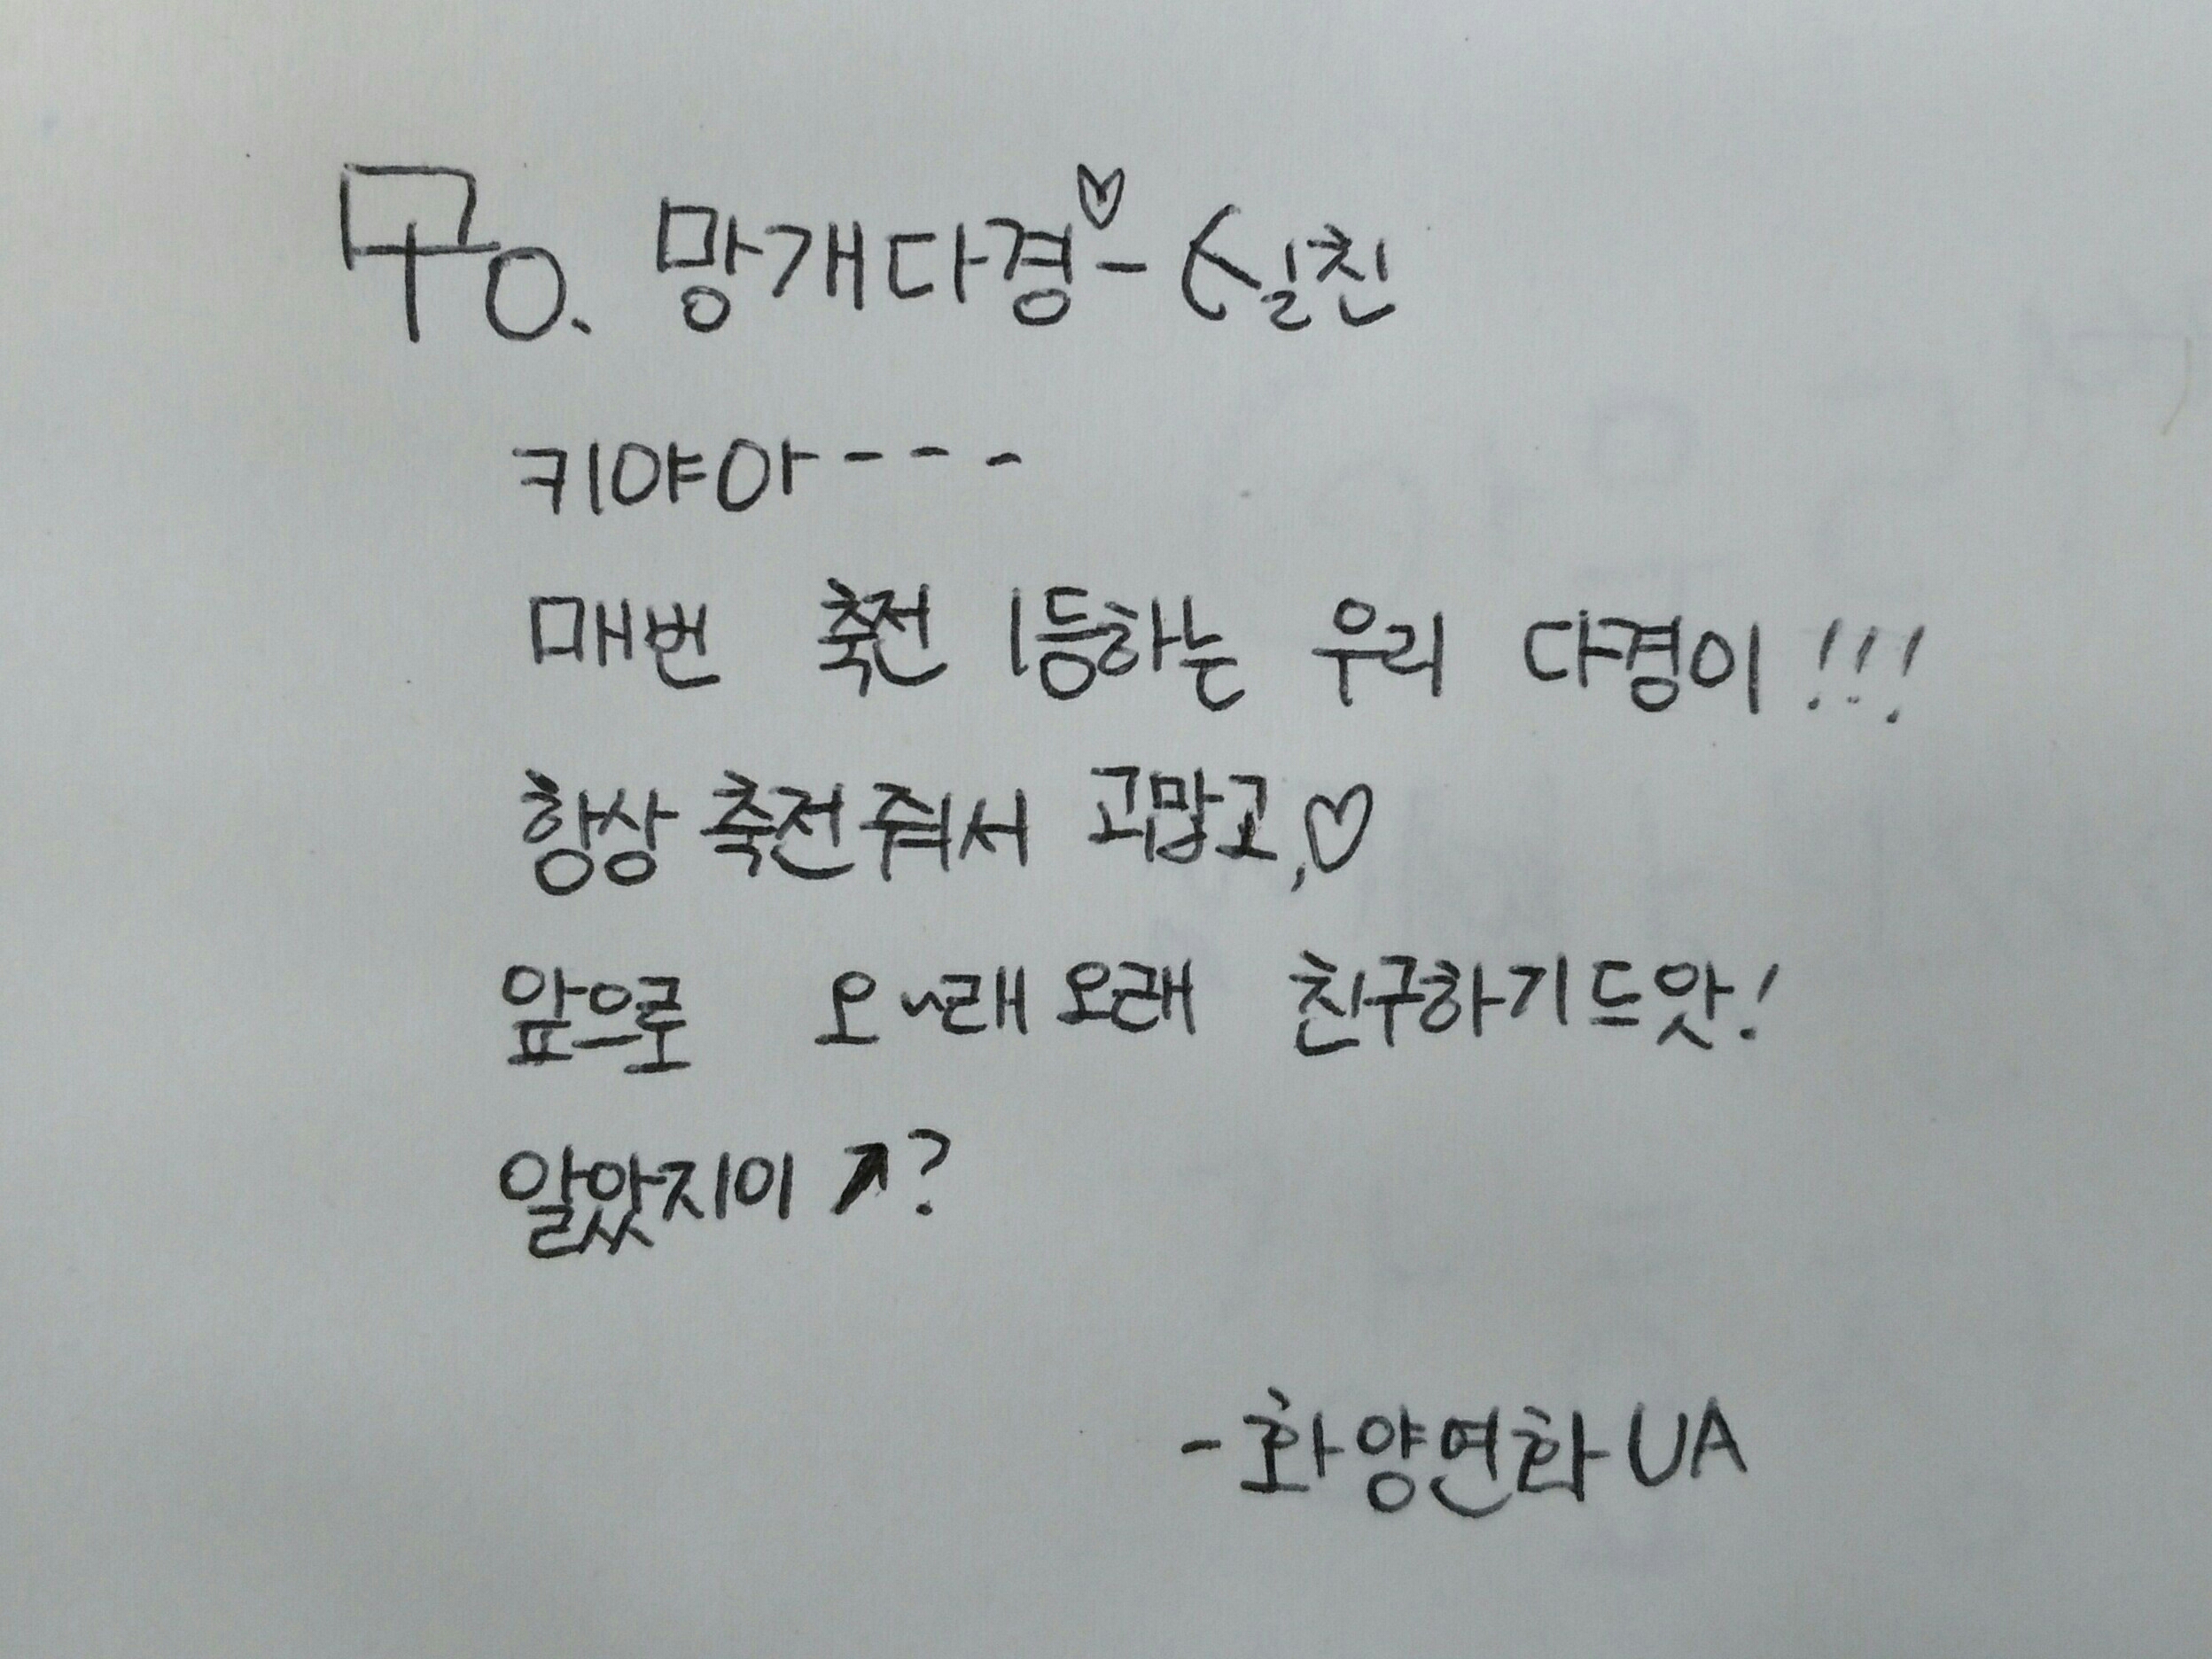 To. 망개다경♡- 실친
키야아---
매번 축전 1등하는 우리 다경이!!!
항상 축전 줘서 고맙고,♡
앞으로 오~래오래 친구하기드앗!
알았지이↗?
-화양연화UA